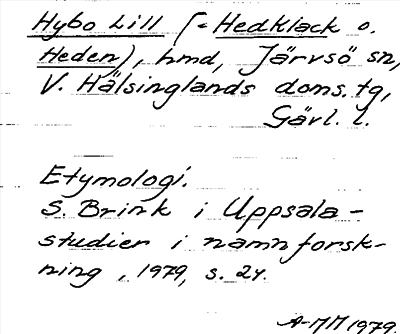 Hybo Lill (= Hedklack o.
Heden), hmd, Järvsö sn,
V. Hälsinglands doms. tg,
Gävl. l.
Etymologi.
S. Brink i Uppsala-
studier i namnforsk-
ning, 1979, s. 24.
A-MM 1979.